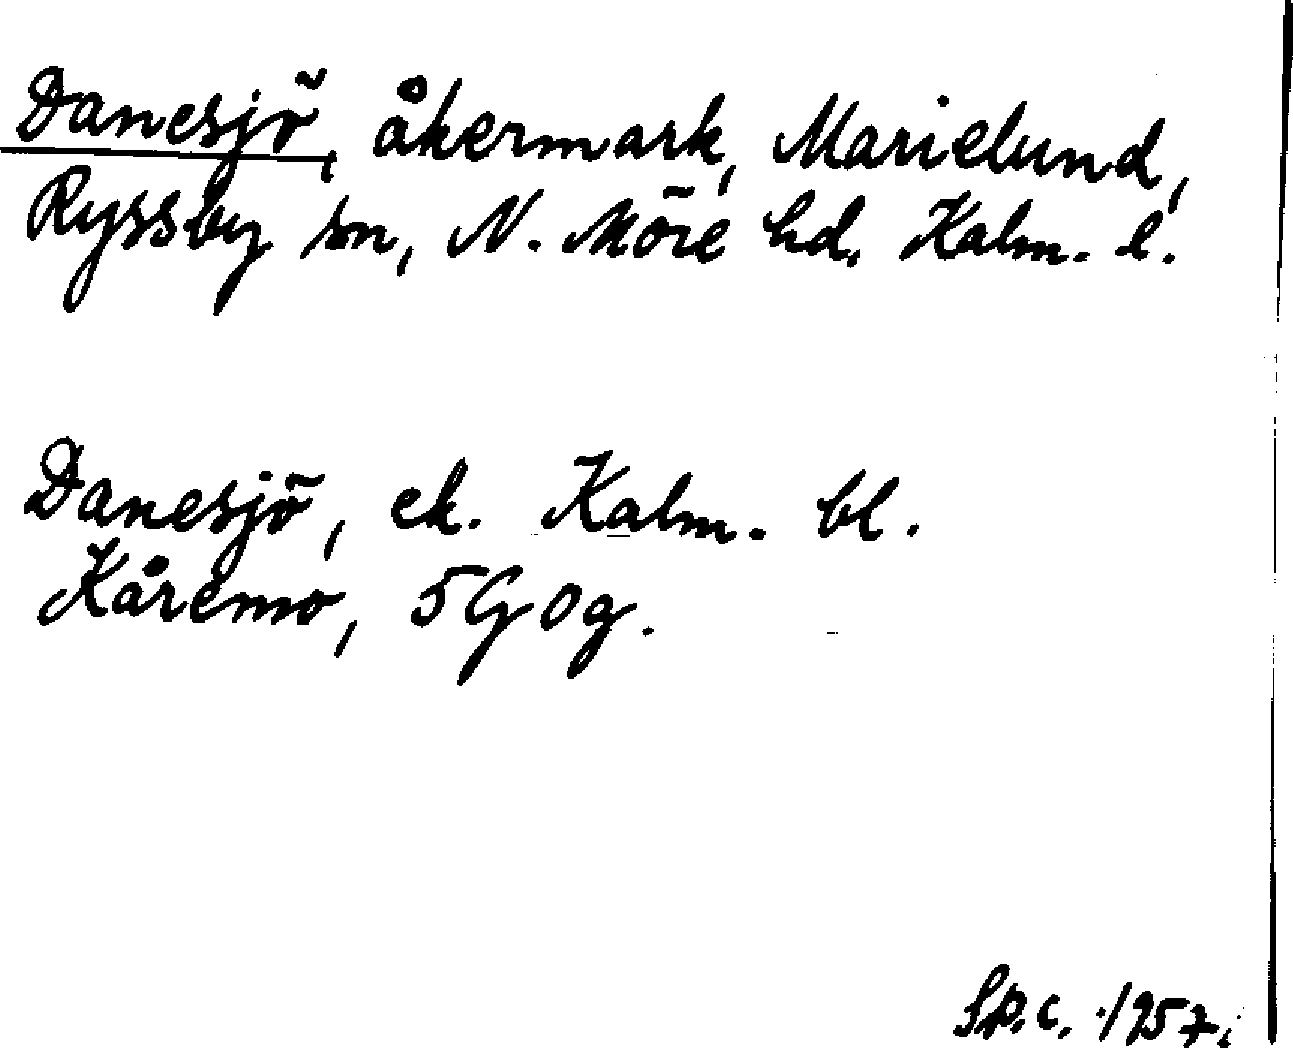 Danesjö, åkermark, Marielund,
Ryssby sn, N. Möre hd. Kalm. l.
Danesjö, ek. Kalm. bl.
Kåremo, 5G0g.
Sp.c. 1957.